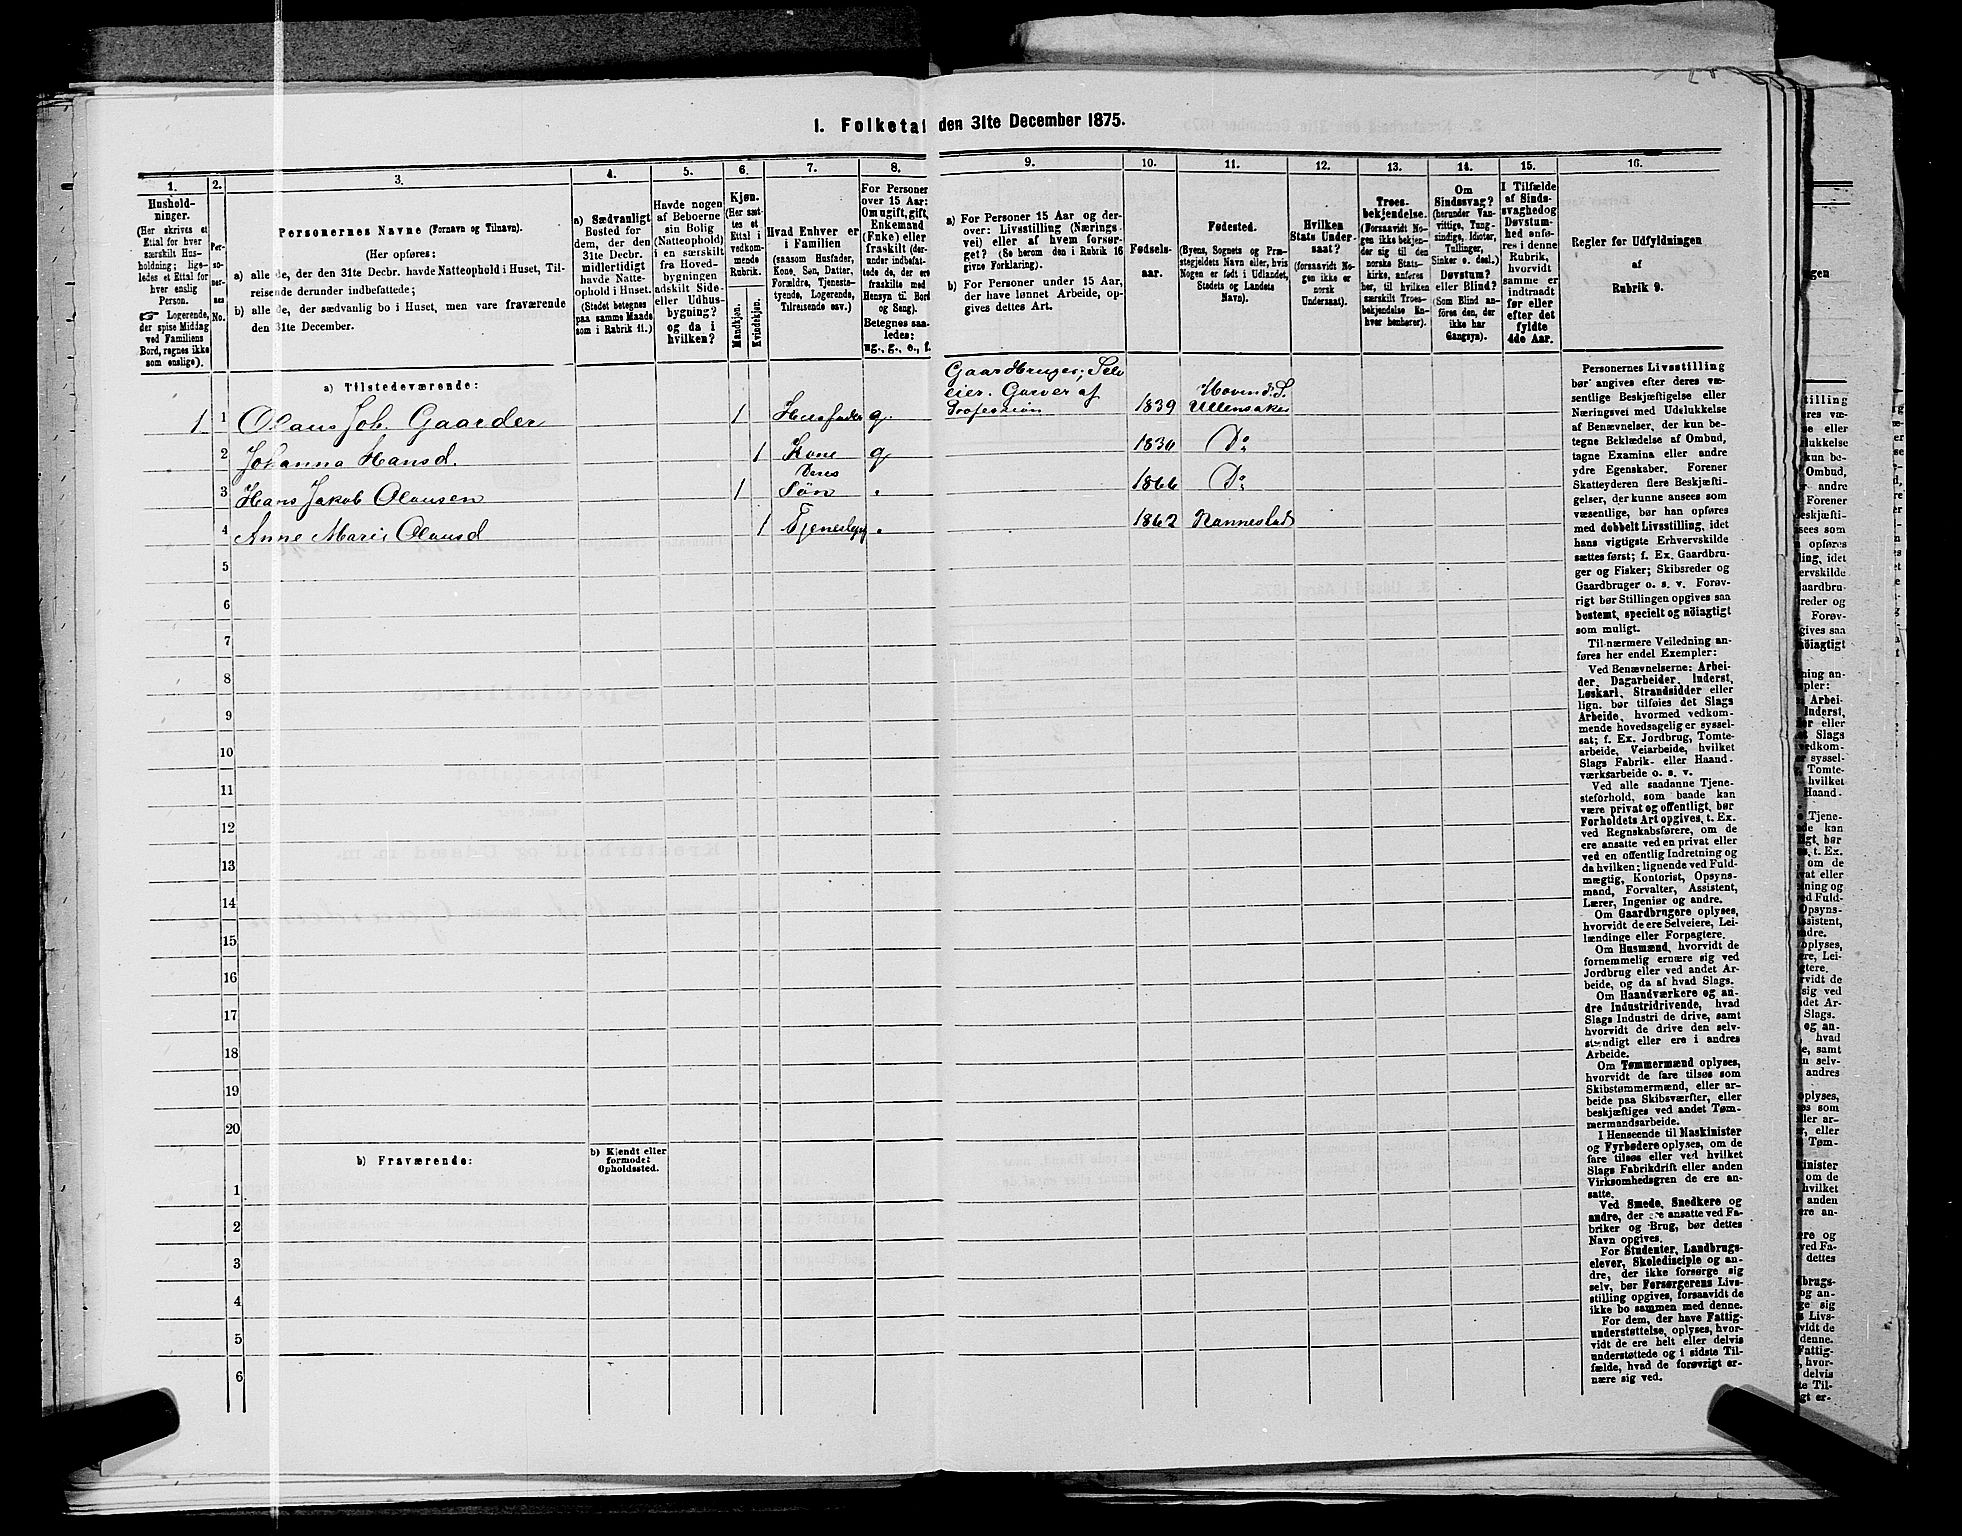 1. Folketal den 31te December 1875.
1.
2.
3.
4.
5.
6.
7.
8.
9.
10.
11.
12.
13.
14.
15.
16.
Hushold-
ninger.
(Her skrives et
Ettal for hver
særskilt Hus-
holdning; lige-
ledes et Ettal for
hver enslig
Person.
☞ Logerende,
der spise Middag
ved Familiens
Bord, regnes ikke
som enslige).
Per-
so-
ner-
nes
No.
Personernes Navne (Fornavn og Tilnavn).
(Her opføres:
a) alle de, der den 31te Decbr. havde Natteophold i Huset, Til-
reisende derunder indbefattede;
b) alle de, der sædvanlig bo i Huset, men vare fraværende
den 31te December.
a) Sædvanligt
Bosted for
dem, der den
31te Decbr.
midlertidigt
havde Natte-
ophold i Huset.
(Stedet betegnes
paa samme Maade
som i Rubrik 11.)
Havde nogen
af Beboerne
sin Bolig
(Natteophold)
i en særskilt
fra Hoved-
bygningen
adskilt Side-
eller Udhus-
bygning?
og da i
hvilken?
Kjøn.
(Her sæt-
tes et
Ettal i
vedkom-
mende
Rubrik.
Mandkjøn.
Kvindekjøn.
Hvad Enhver er
i Familien
(saasom Husfader,
Kone, Søn, Datter,
Forældre, Tjeneste-
tyende, Logerende,
Tilreisende osv.)
For Personer
over 15 Aar:
Om ugift, gift,
Enkemand
(Enke) eller
fraskilt (der-
under indbefat-
tede de, der ere
fraskilte med
Hensyn til Bord
og Seng).
Betegnes saa-
ledes:
ug., g., e., f.
a) For Personer 15 Aar og der-
over: Livsstilling (Nærings-
vei) eller af hvem forsør-
get? (Se herom den i Rubrik 16
givne Forklaring).
b) For Personer under 15 Aar,
der have lønnet Arbeide, op-
gives dettes Art.
Fødsels-
aar.
Fødested.
(Byens, Sognets og Præ-
stegjeldets Navn eller, hvis
Nogen er født i Udlandet,
Stedets og Landets
Navn).
Hvilken
Stats Under-
saat?
(forsaavidt No-
gen ikke er
norsk
Undersaat).
Troes-
bekjendelse.
(Forsaavidt No-
gen ikke bekjen-
der sig til den
norske Stats-
kirke, anføres
her, til hvilken
særskilt Troes-
bekjendelse En-
hver henhører).
Om
Sindssvag?
(herunder Van-
vittige, Tung-
sindige, Idioter,
Tullinger,
Sinker o. desl.)
Døvstum?
eller Blind?
(Som Blind an-
føres den, der
ikke har
Gangsyn).
I Tilfælde
af Sinds-
svaghed og
Døvstum-
hed anfø-
res i denne
Rubrik,
hvorvidt
samme er
indtraadt
før eller
efter det
fyldte
4de Aar.
Regler for Udfyldningen
af
Rubrik 9.
a) Tilstedeværende:
1
1 Olaus Joh. Gaarder 1 Husfader g. Gaardbruger, Selv
eier. Garver af
Profession 1839 Hovind S.
Ullensaker
2 Johanna Hansd. 1 Kone g 1830 Do
3 Hans Jakob Olausen 1 Deres
Søn 1866 Do
4 Anne Marie Olausd 1 1862 Nannestad
5
6
7
8
9
10
11
12
13
14
15
16
17
18
19
20
b) Fraværende:
b) Kjendt eller
formodet
Opholdssted.
1
2
3
4
5
6
Personernes Livsstilling
bør angives efter deres væ-
sentlige Beskjæftigelse eller
Næringsvei med Udelukkelse
af Benævnelser, der kun be-
tegne Beklædelse af Ombud,
tagne Examina eller andre
ydre Egenskaber. Forener
Skatteyderen flere Beskjæfti-
gelser, der kunne ansees som
væsentlige, bør han opføres
med dobbelt Livsstilling, idet
hans vigtigste Erhvervskilde
sættes først; f. Ex. Gaardbru-
ger og Fisker; Skibsreder og
Gaardbruger o. s. v. Forøv-
rigt bør Stillingen opgives saa
bestemt, specielt og nöiagtigt
som muligt.
Til nærmere Veiledning an-
føres her endel Exempler:
Ved Benævnelserne: Arbei-
der, Dagarbeider, Inderst,
Løskarl, Strandsidder eller
lign. bør tilføies det Slags
Arbeide, hvormed vedkom-
mende hovedsagelig er syssel-
sat; f. Ex. Jordbrug, Tomte-
arbeide, Veiarbeide, hvilket
Slags Fabrik- eller Haand-
værksarbeide o. s. v.
Ved alle saadanne Tjene-
steforhold, som baade kan
være privat og offentligt, bør
Forholdets Art opgives, t. Ex.
ved Regnskabsførere, om de
ere ansatte ved en privat eller
ved en offentlig Indretning og
da hvilken; lignende ved Fuld-
mægtig, Kontorist, Opsyns-
mand, Forvalter, Assistent,
Lærer, Ingeniør og andre.
Om Gaardbrugere oplyses,
hvorvidt de ere Selveiere, Lei-
lændinge eller Forpagtere.
Om Husmænd, hvorvidt de
fornemmelig ernære sig ved
Jordbrug eller ved andet Ar-
beide, og da af hvad Slags.
Om Haandværkere og an-
dre Industridrivende, hvad
Slags Industri de drive, samt
hvorvidt de drive den selv-
stændigt eller ere i andres
Arbeide.
Om Tømmermænd oplyses,
hvorvidt de fare tilsøs som
Skibstømmermænd, eller ar-
beide paa Skibsværfter, eller
beskjæftiges ved andet Tøm-
mermandsarbeide.
I Henseende til Maskinister
og Fyrbødere oplyses, om de
fare tilsøs eller ved hvilket
Slags Fabrikdrift eller anden
Virksomhedsgren de ere an-
satte.
Ved Smede, Snedkere og
andre, der ere ansatte ved Fa-
briker og Brug, bør dettes
Navn opgives.
For Studenter, Landbrugs-
elever, Skoledisciple og an-
dre, der ikke forsørge sig
selv, bør Forsørgerens Livs-
stilling opgives, forsaavidt de
ikke bo sammen med denne.
For dem, der have Fattig-
understøttelse, oplyses, hvor-
vidt de ere helt eller delvis
understøttede og i sidste Til-
fælde, hvad de forøvrigt er-
nære sig ved.